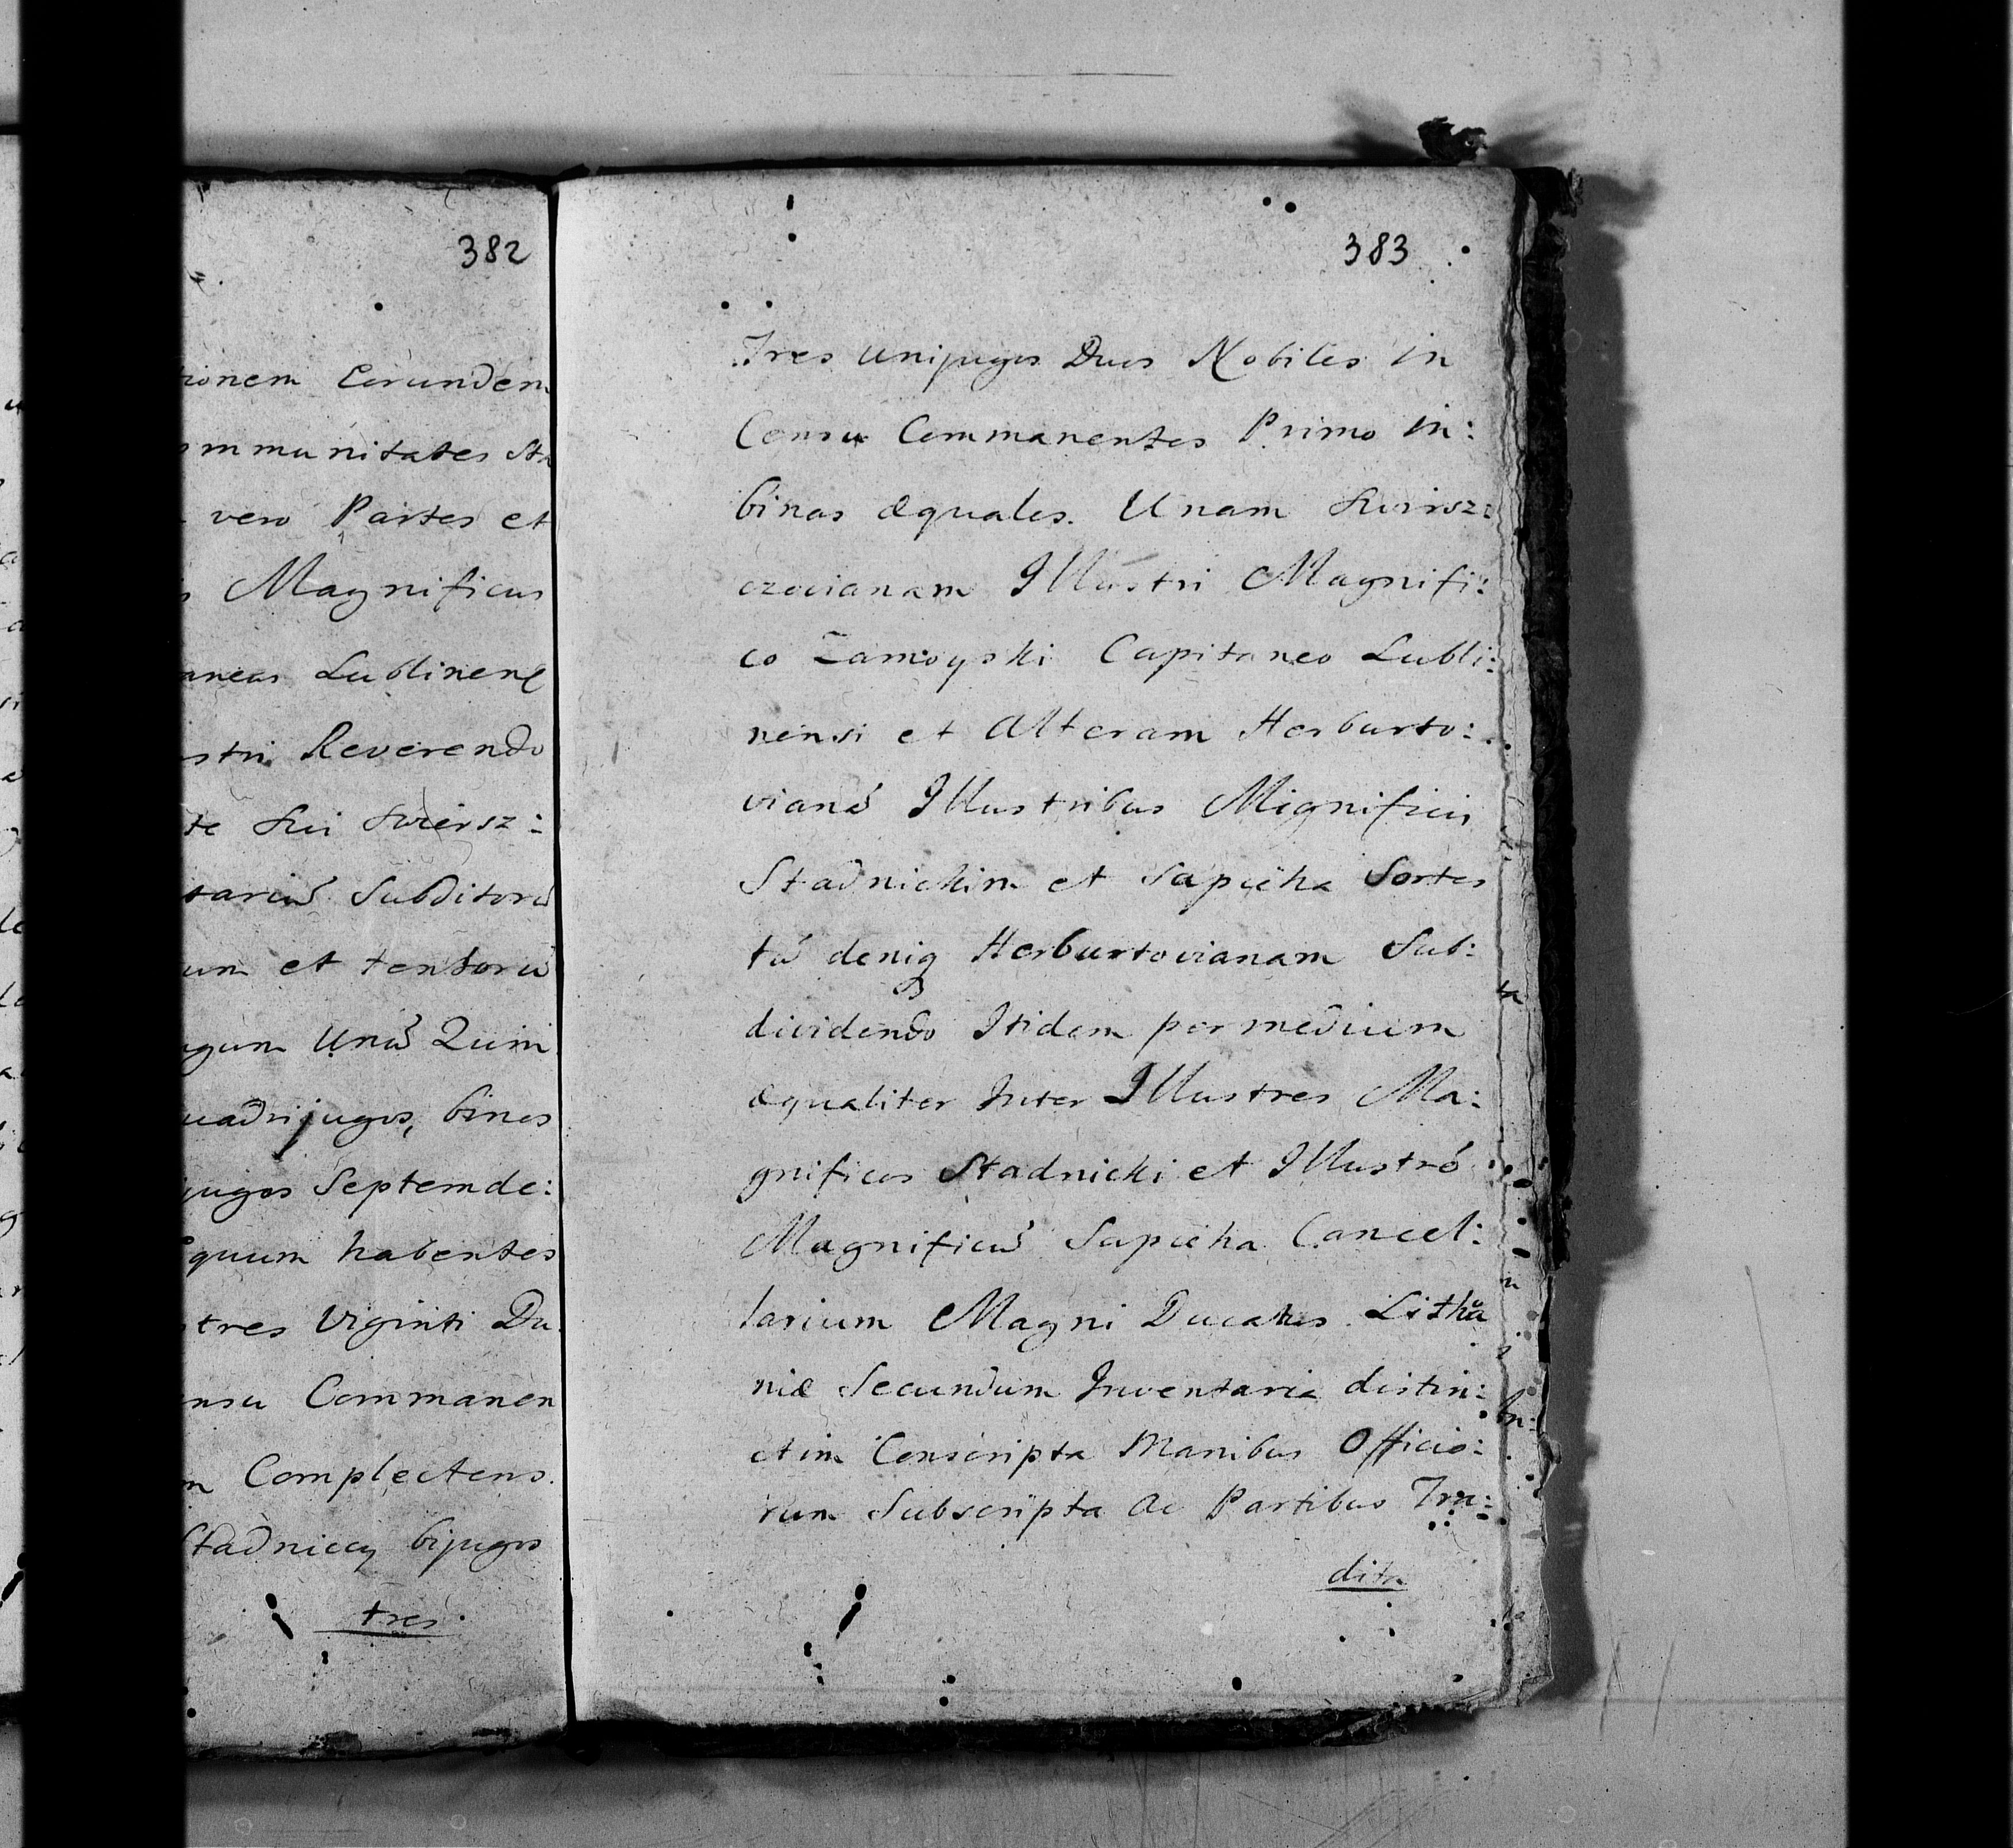 382
ionem Eorundem
ommunitates
vero Partes et
Magnificus
aneas Lublinens
stri Reverendo
te Sui Swiersz:
tariũ Subditorũ
um et tentorũ
ugum Unũ Quin
uadrijugos, binos
jugos Septemde:
quum habentes
tres Viginti Du
nsu Commanen
m Complectens.
Stadniccy bijugos
tres
383
Tres unijugos Duos Nobiles in
Censu Commanentes Primo in:
binas æquales. Unam Swirsz:
czovianam Illustri Magnifi:
co Zamoyski Capitaneo Lubli:
nensi et Alteram Herburto:
vianã Illustribus Mignificis
Stadnickim et Sapieha Sortes
tũ deniq Herburtovianam Sub:
dividendo Itidem per medium
æqualiter Inter Illustres Ma:
gnificos Stadnicki et Illustrẽ
Magnificũ Sapieha Cancel:
larium Magni Ducatus Lithua
niæ Secundum Inventaria distin:
ctim Conscripta Manibus Officio:
rum Subscripta Ac Partibus Tra:
dita